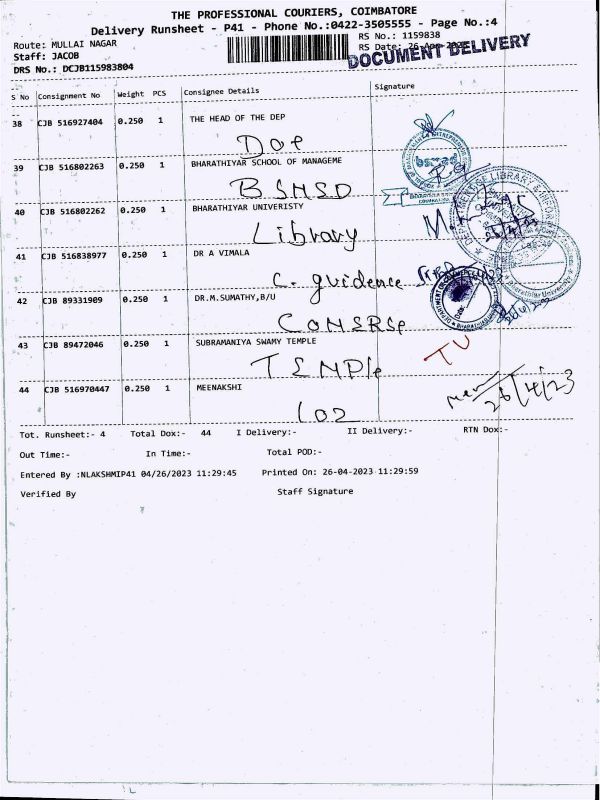 THE PROFESSIONAL COURIERS, COIMBATORE
Delivery Runsheet - P41 - Phone No.:0422-3505555 - Page No.:4
Route: MULLAI NAGAR
RS No.: 1159838
Staff: JACOB
RS Date: 26-Apr-2023
DOCUMENT DELIVERY
DRS No.: DCJB115983804
S No Consignment No Weight PCS Consignee Details Signature
38 CJB 516927404 0.250 1 THE HEAD OF THE DEP
DOP
39 CJB 516802263 0.250 1 BHARATHIYAR SCHOOL OF MANAGEME
BSMSD
40 CJB 516802262 0.250 1 BHARATHIYAR UNIVERISTY
Library
41 CJB 516838977 0.250 1 DR A VIMALA
C. guidence
42 CJB 89331909 0.250 1 DR.M.SUMATHY,B/U
COMSRSP
43 CJB 89472046 0.250 1 SUBRAMANIYA SWAMY TEMPLE
TEMPle
44 CJB 516970447 0.250 1 MEENAKSHI
26/4/23
102
Tot. Runsheet:- 4 Total Dox:- 44 I Delivery:- II Delivery:- RTN Dox:-
Out Time:- In Time:- Total POD:-
Entered By :NLAKSHMIP41 04/26/2023 11:29:45 Printed On: 26-04-2023 11:29:59
Verified By Staff Signature